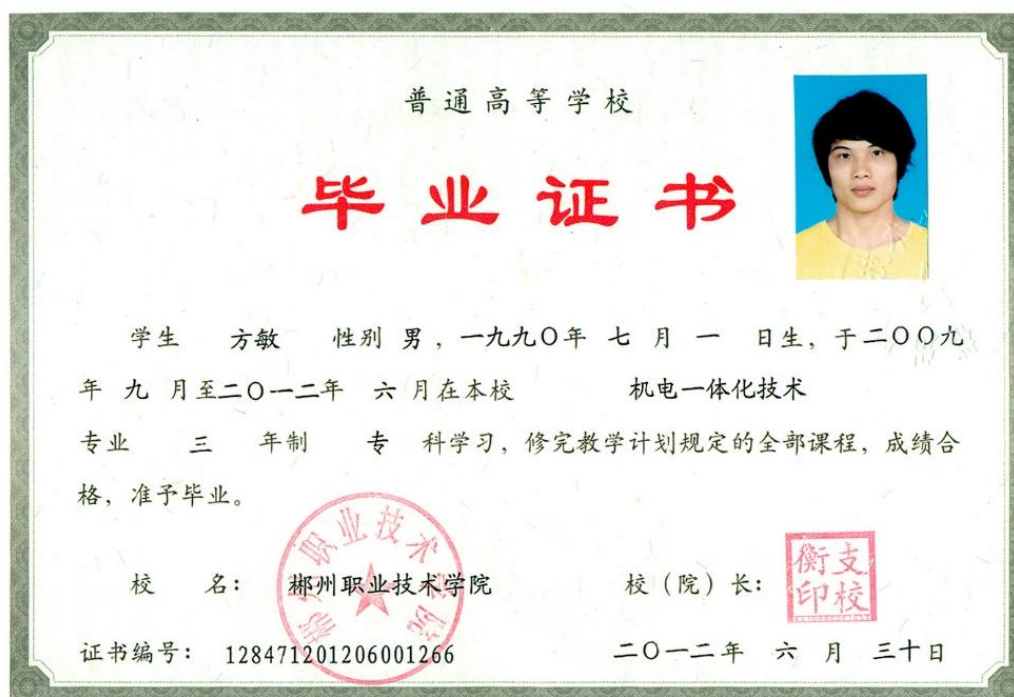 普通高等学校
毕业证书
学生 方敏 性别 男，一九九〇年 七 月 一 日生，于二〇〇九
年 九 月至二〇一二年 六 月在本校 机电一体化技术
专业 三 年制 专 科学习，修完教学计划规定的全部课程，成绩合
格，准予毕业。
郴州职业技术学院
校 名： 郴州职业技术学院 校（院）长：
支校衡印
证书编号： 128471201206001266 二〇一二年 六 月 三十日